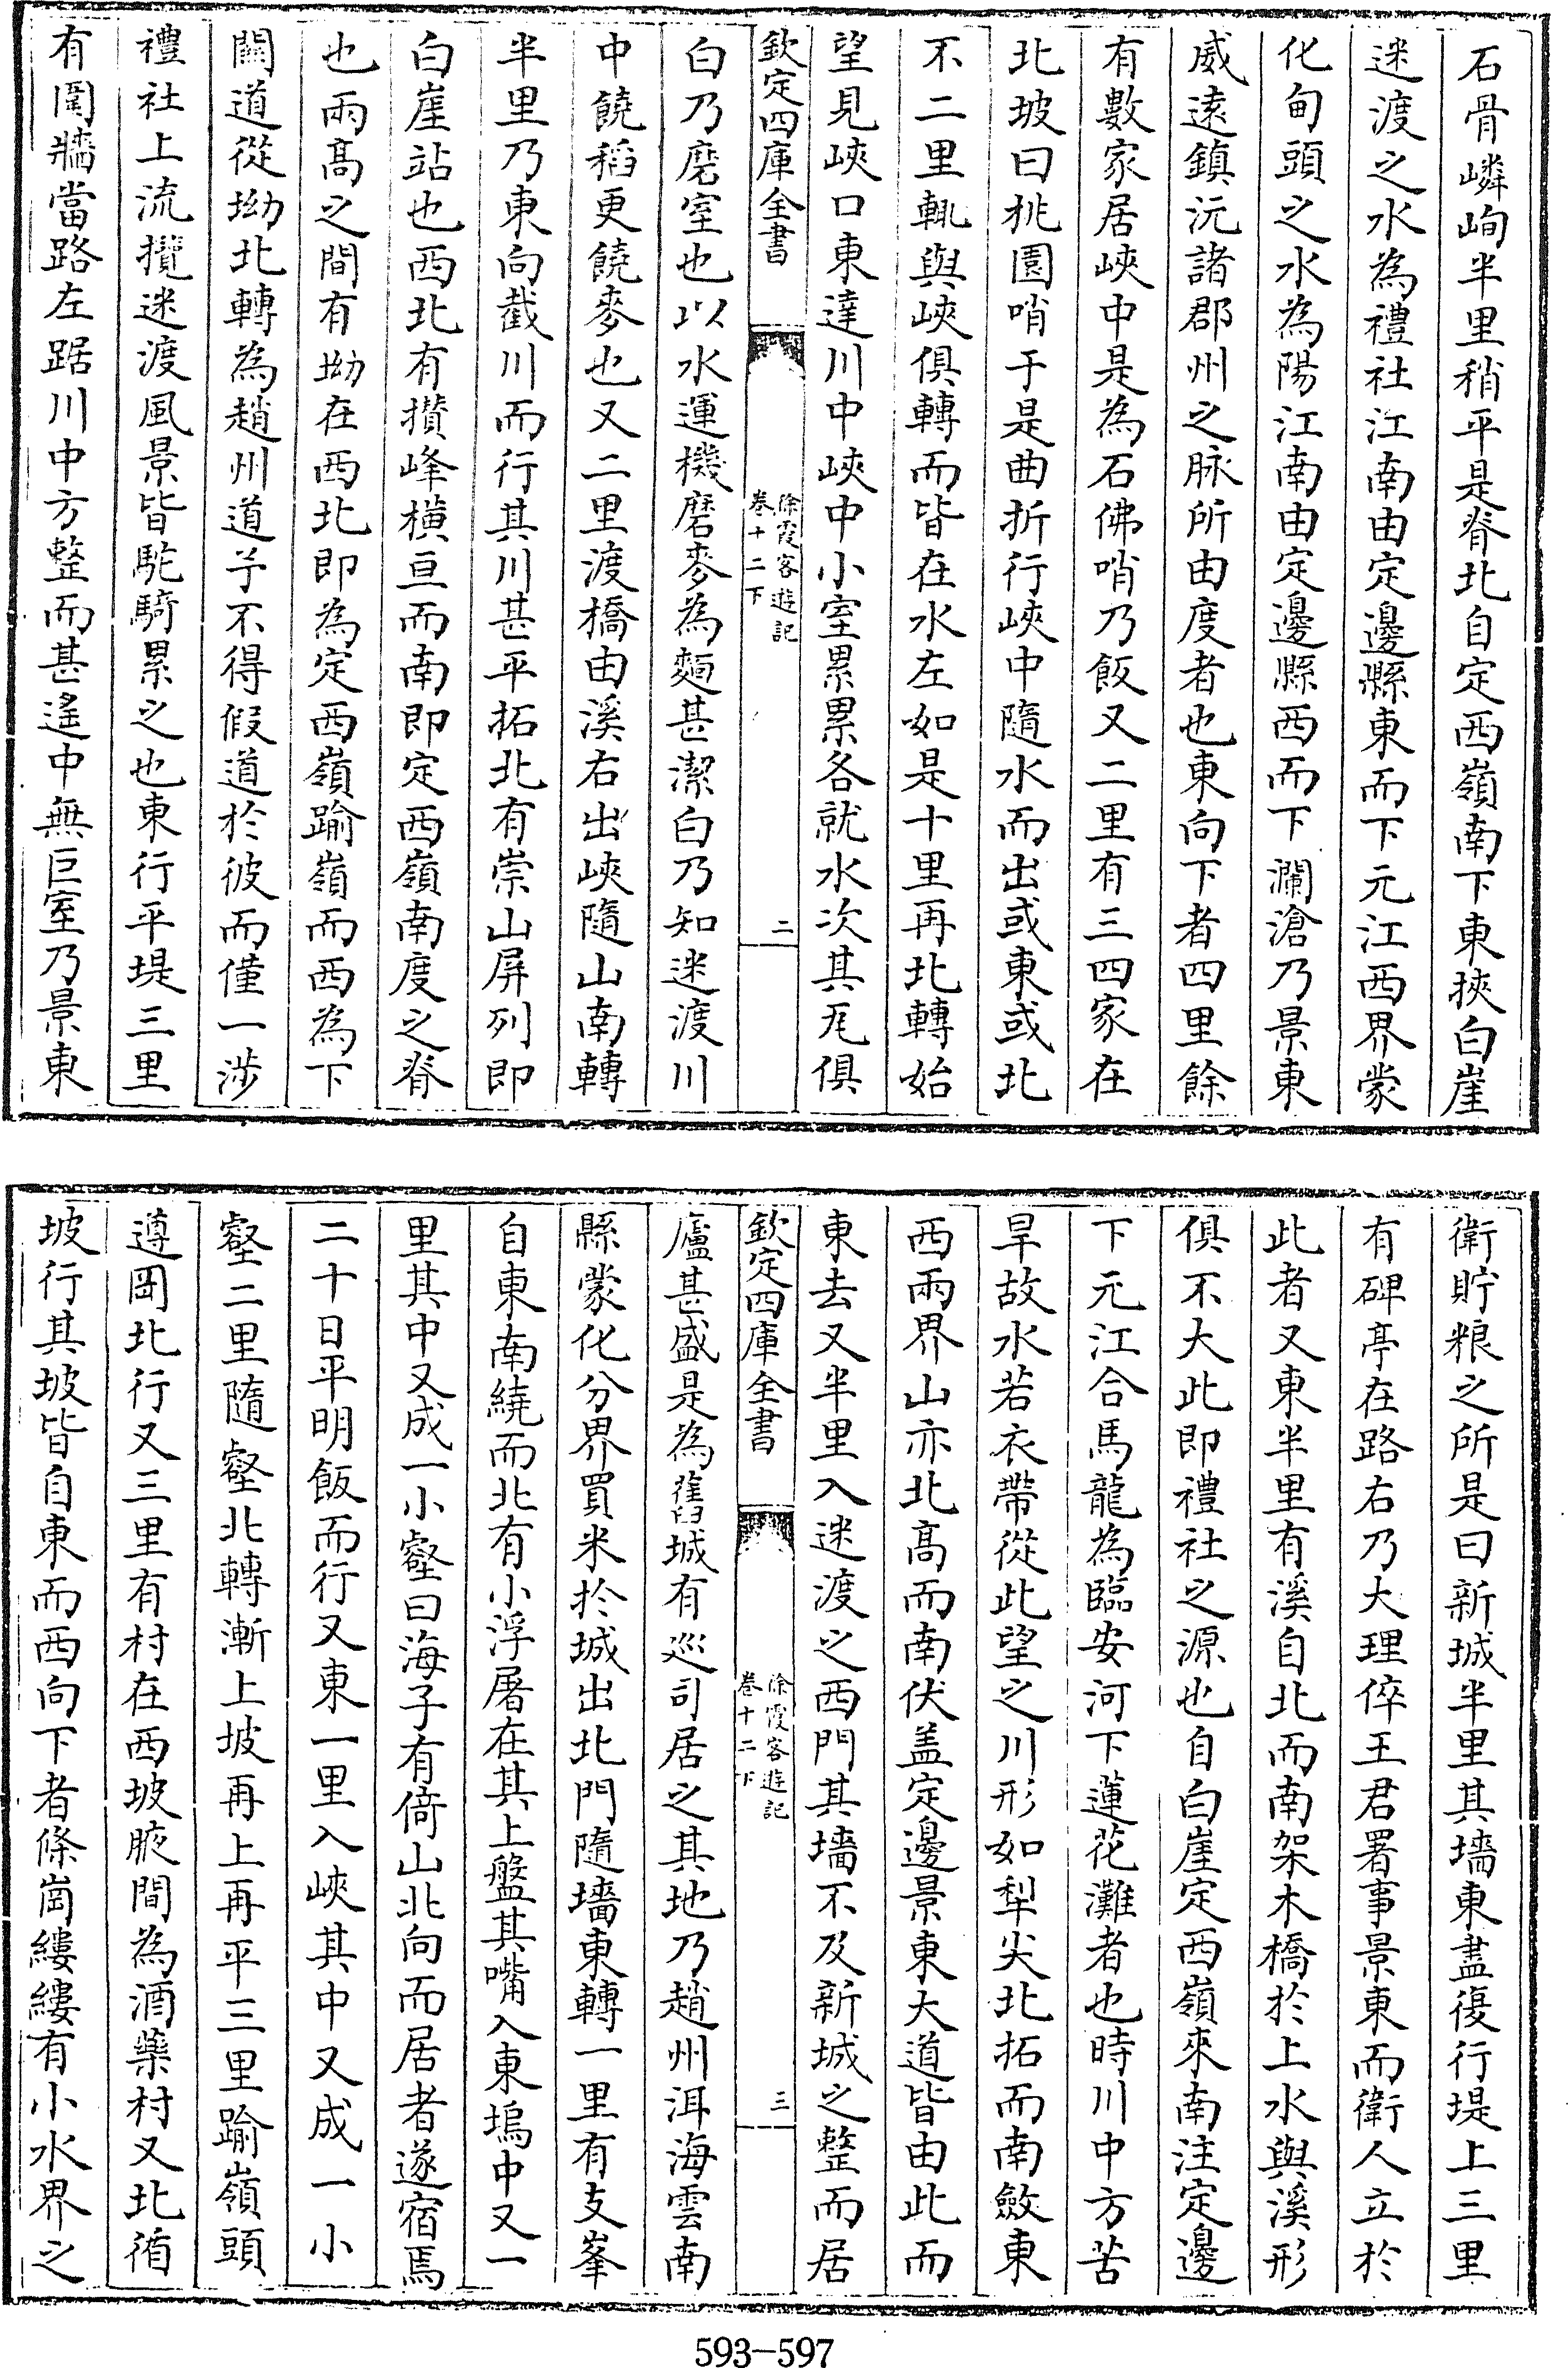 石骨嶙峋半里稍平是脊北自定西嶺南下東挾白崖
迷渡之水為禮社江南由定邊縣東而下元江西界蒙
化甸頭之水為陽江南由定邊縣西而下瀾滄乃景東
威逺鎮沅諸郡州之脉所由度者也東向下者四里餘
有數家居峽中是為石佛哨乃飯又二里有三四家在
北坡曰桃園哨于是曲折行峽中隨水而出或東或北
不二里輒與峽俱轉而皆在水左如是十里再北轉始
望見峽口東達川中峽中小室累累各就水次其㡳俱
欽定四庫全書
徐霞客遊記
卷十二下
二
白乃磨室也以水運機磨麥為麵甚潔白乃知迷渡川
中饒稻更饒麥也又二里渡橋由溪右出峽隨山南轉
半里乃東向截川而行其川甚平拓北有崇山屏列即
白崖站也西北有攢峰橫亘而南即定西嶺南度之脊
也兩髙之間有坳在西北即為定西嶺踰嶺而西為下
關道從坳北轉為趙州道予不得假道於彼而僅一涉
禮社上流攬迷渡風景皆駝騎累之也東行平堤三里
有圍牆當路左踞川中方整而甚遙中無巨室乃景東
衛貯粮之所是曰新城半里其墻東盡復行堤上三里
有碑亭在路右乃大理倅王君署事景東而衛人立於
此者又東半里有溪自北而南架木橋於上水與溪形
俱不大此即禮社之源也自白崖定西嶺來南注定邊
下元江合馬龍為臨安河下蓮花灘者也時川中方苦
旱故水若衣帶從此望之川形如犁尖北拓而南斂東
西兩界山亦北髙而南伏盖定邊景東大道皆由此而
東去又半里入迷渡之西門其墻不及新城之整而居
欽定四庫全書
徐霞客遊記
卷十二下
三
廬甚盛是為舊城有巡司居之其地乃趙州洱海雲南
縣蒙化分界買米於城出北門隨墻東轉一里有支峯
自東南繞而北有小浮屠在其上盤其嘴入東塢中又一
里其中又成一小壑曰海子有倚山北向而居者遂宿焉
二十日平明飯而行又東一里入峽其中又成一小
壑二里隨壑北轉漸上坡再上再平三里踰嶺頭
遵岡北行又三里有村在西坡腋間為酒藥村又北循
坡行其坡皆自東而西向下者條崗縷縷有小水界之
593-597